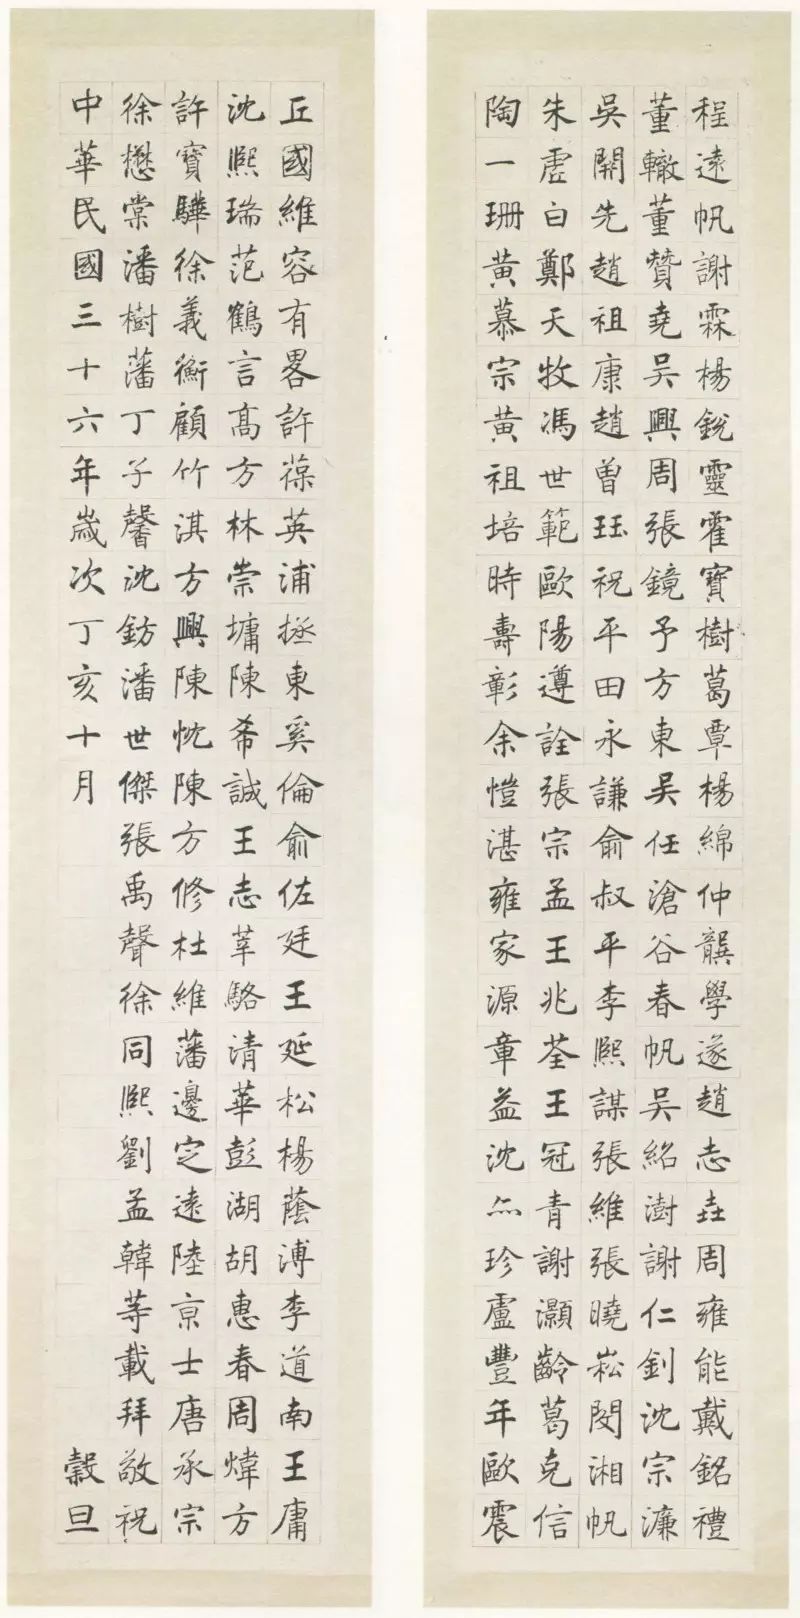 程遠帆謝霖楊銳靈霍寶樹葛覃楊綿仲龔學遂趙志垚周雍能戴銘禮
董轍董贊堯吳興周張鏡予方東吳任滄谷春帆吳紹澍謝仁釗沈宗濂
吳開先趙祖康趙曾珏祝平田永謙俞叔平李熙謀張維張曉崧閔湘帆
朱虛白鄭天牧馮世範歐陽遵詮張宗孟王兆荃王冠青謝灝齡葛克信
陶一珊黃慕宗黃祖培時壽彰余愷湛雍家源章益沈尒珍盧豐年歐震
丘國維容有畧許葆英浦拯東奚倫俞佐廷王延松楊蔭溥李道南王庸
沈熙瑞范鶴言高方林崇墉陳希誠王志莘駱清華彭湖胡惠春周煒方
許寶驊徐義衡顧竹淇方興陳忱陳方修杜維藩邊定遠陸京士唐承宗
徐懋棠潘樹藩丁子馨沈鈁潘世傑張禹聲徐同熙劉孟韓等載拜敬祝
中華民國三十六年歲次丁亥十月 穀旦